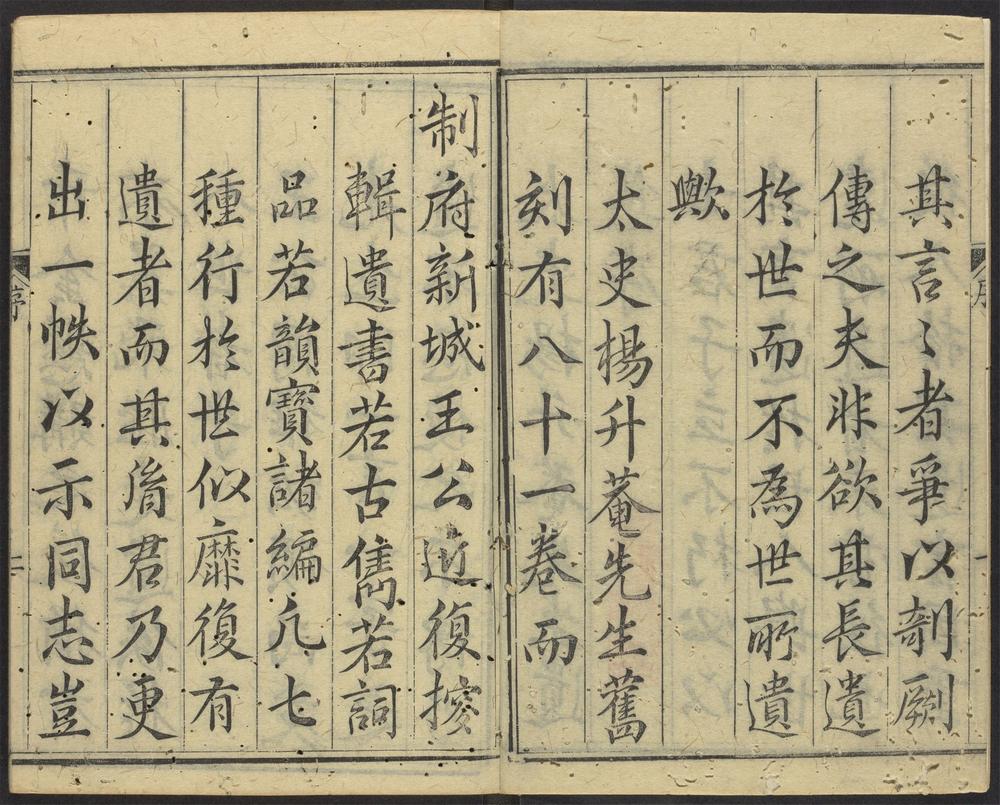 其言〻者爭以剞劂
傳之夫非欲其長遺
於世而不為世所遺
歟
太史楊升菴先生舊
刻有八十一卷而
制府新城王公近復搜
輯遺書若古雋若詞
品若韻寶諸編凡七
種行於世似靡復有
遺者而其胤君乃更
出一帙以示同志豈
序
二